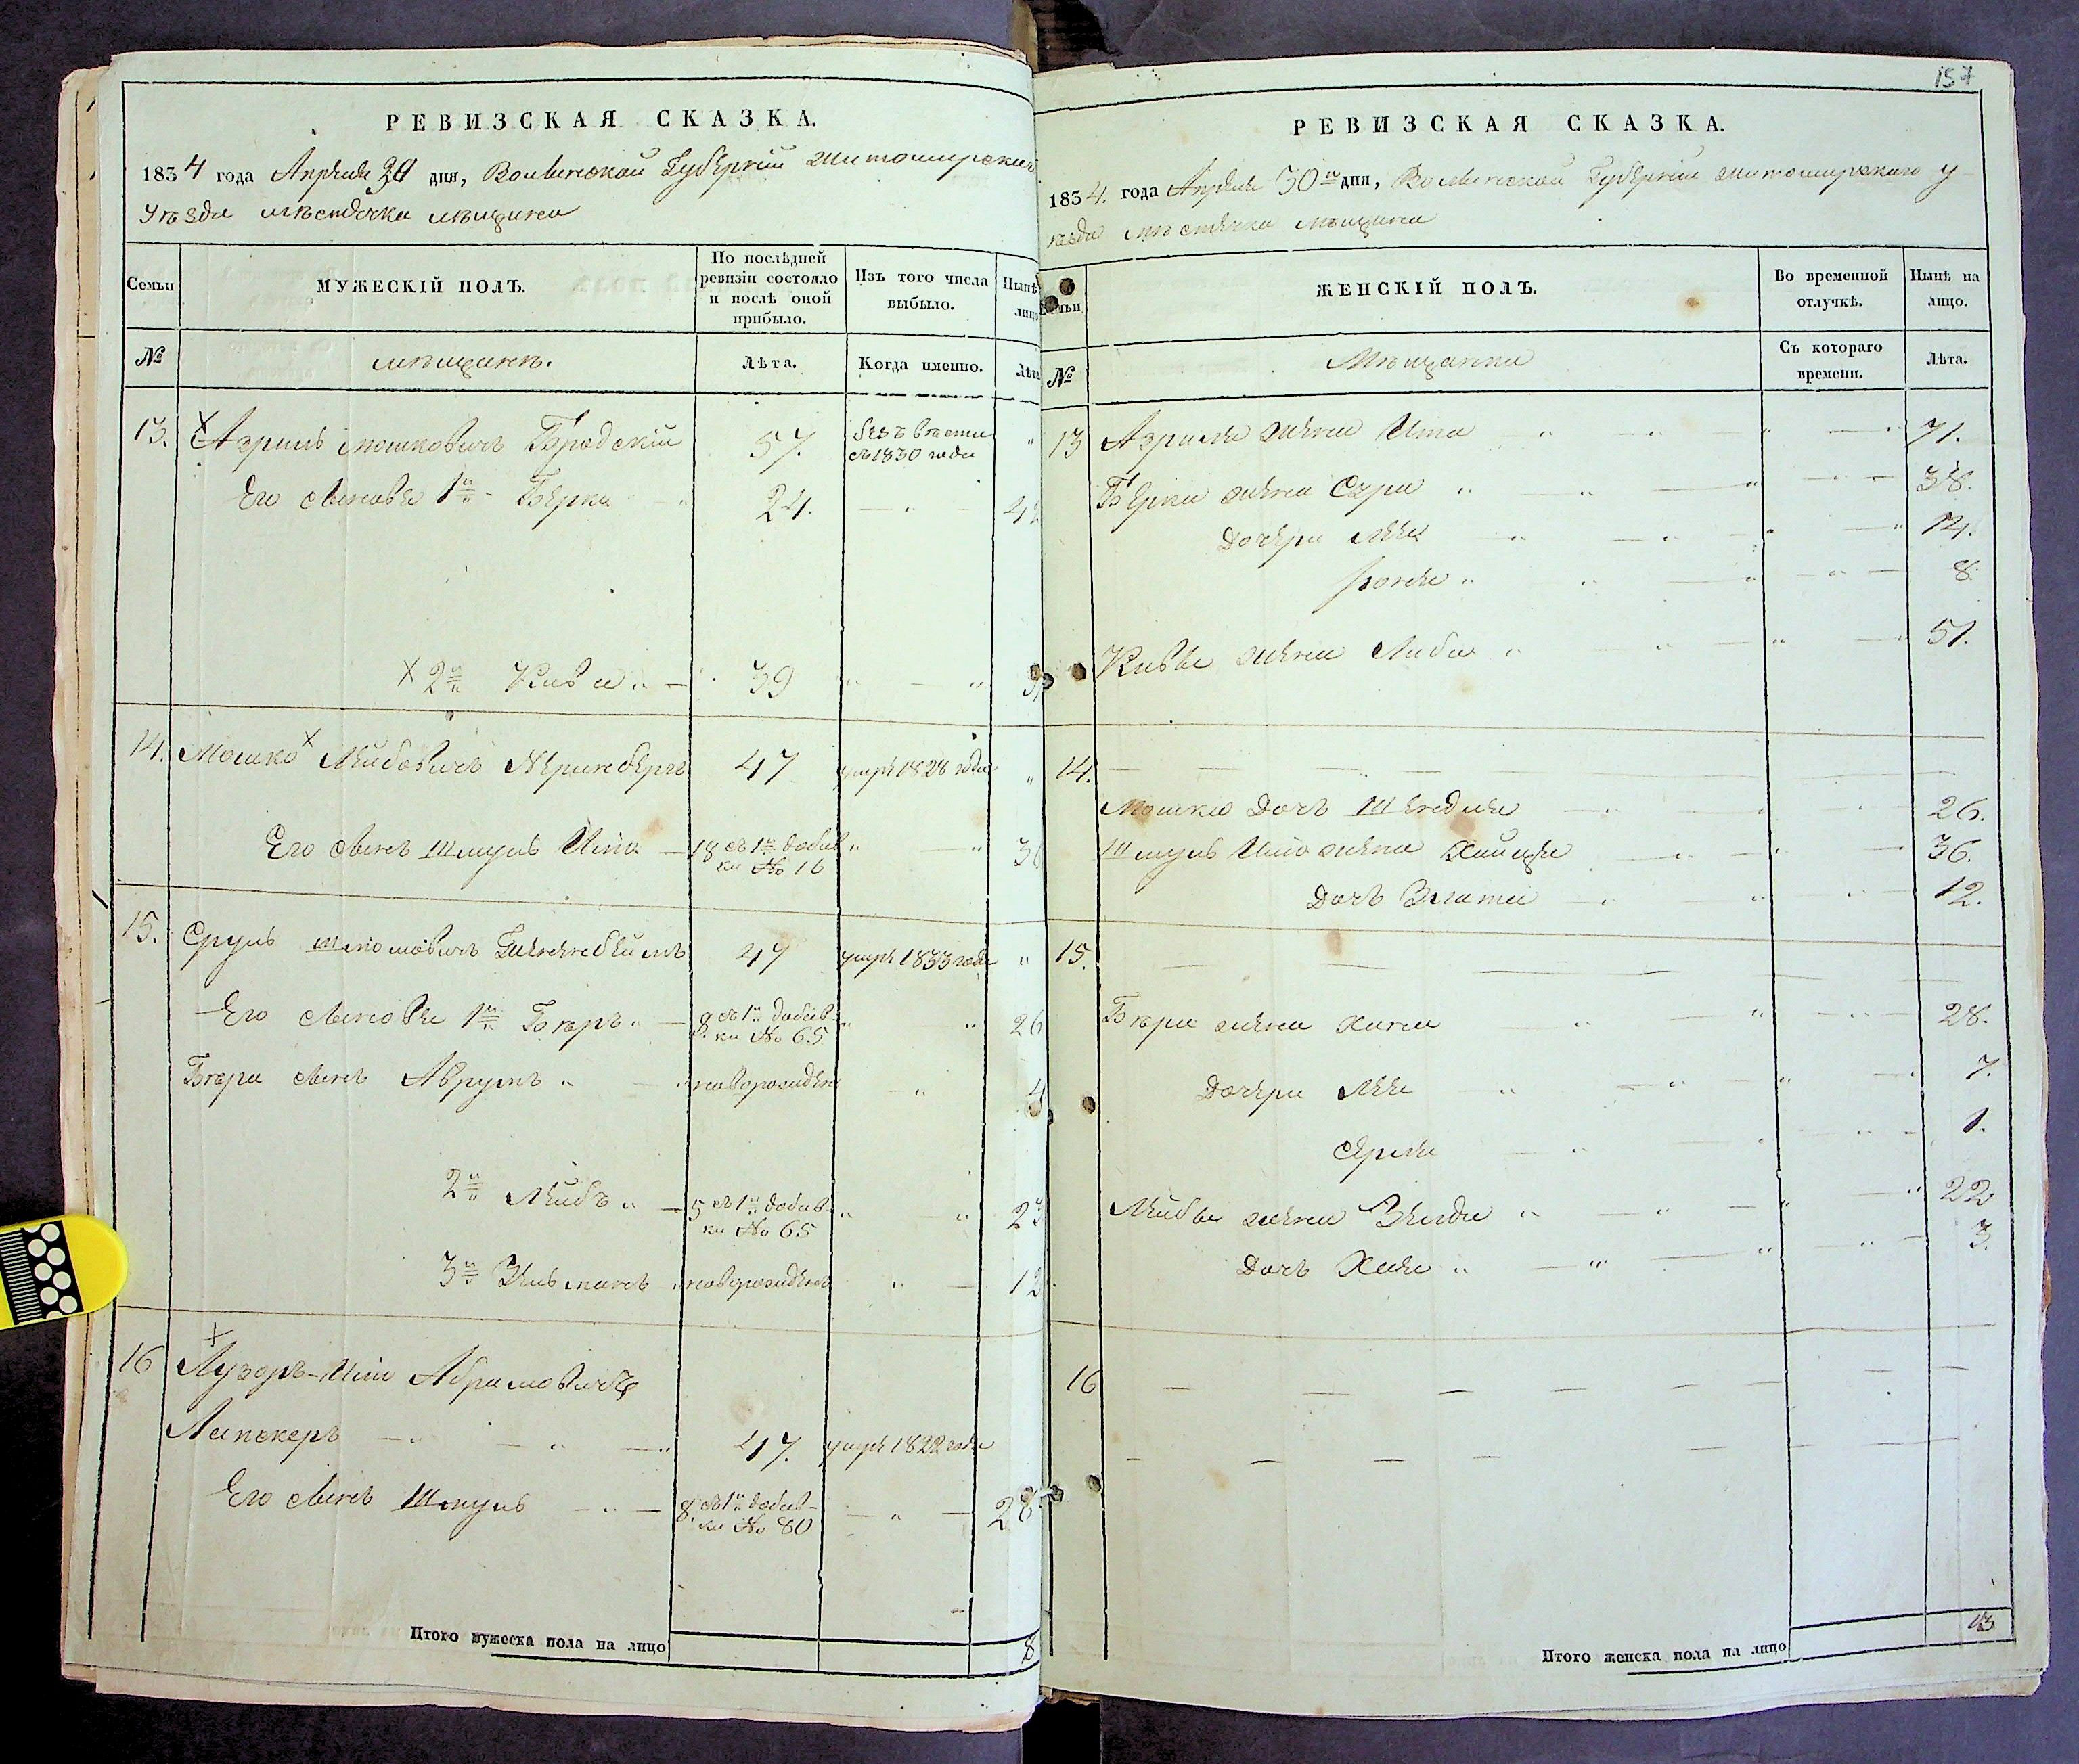 РЕВИЗСКАЯ СКАЗКА.
1834 года Апреля 30 дня, Волынской Губернии Житомирскаго
Уезда местечка
Семьи
МУЖЕСКІЙ ПОЛЪ.
По послѣдней ревизіи состояло и послѣ оной прибыло.
Изъ того числа выбыло.
Нынѣ
лицо
№
мещане.
Лѣта.
Когда именно.
Лѣта
13. Азриль Мошковичъ Бродскій 57. безъ вести съ 1830 года "
Его сыновья 1й Берко 24. 42
2й Кива 39
14. Мошко Лейбовичъ 47 умре 1828 года "
Его сынъ Шмуль Ицко 18 съ 1й добавки № 16
15. Сруль 47 умре 1833 года "
Его сыновья 1й Беръ 8. съ 1й добавки № 65 26
Бера сынъ Аврумъ новорожденъ 4
2й Лейбъ 5 съ 1й добавки № 65 23
3й Зельманъ новорожденъ 12
16 Лузоръ-Ицко Абрамовичъ
47. умре 1822 года
Его сынъ Шмуль 8. съ 1й добавки № 80 26
Итого мужеска пола на лицо 8
157
РЕВИЗСКАЯ СКАЗКА.
1834. года Апреля 30го дня, Волынской Губерніи Житомирскаго у-
езда местечка
Семьи
ЖЕНСКІЙ ПОЛЪ.
Во временной отлучкѣ.
Нынѣ на лицо.
№
Мещанки
Съ котораго времени.
Лѣта.
13 Азриля жена Ита 71.
Берки жена Сура 38.
Дочери Лея 14.
8.
Кивы жена Либа 51.
14.
Мошка дочь Шендля 26.
Шмуль Ицко жена Хайця 36.
Дочь Злата 12.
15.
Бера жена Хана 28.
Дочери Лея 7.
Серля 1.
Лейбы жена Зелда 22
Дочь Хая 3.
16
Итого женска пола на лицо 13